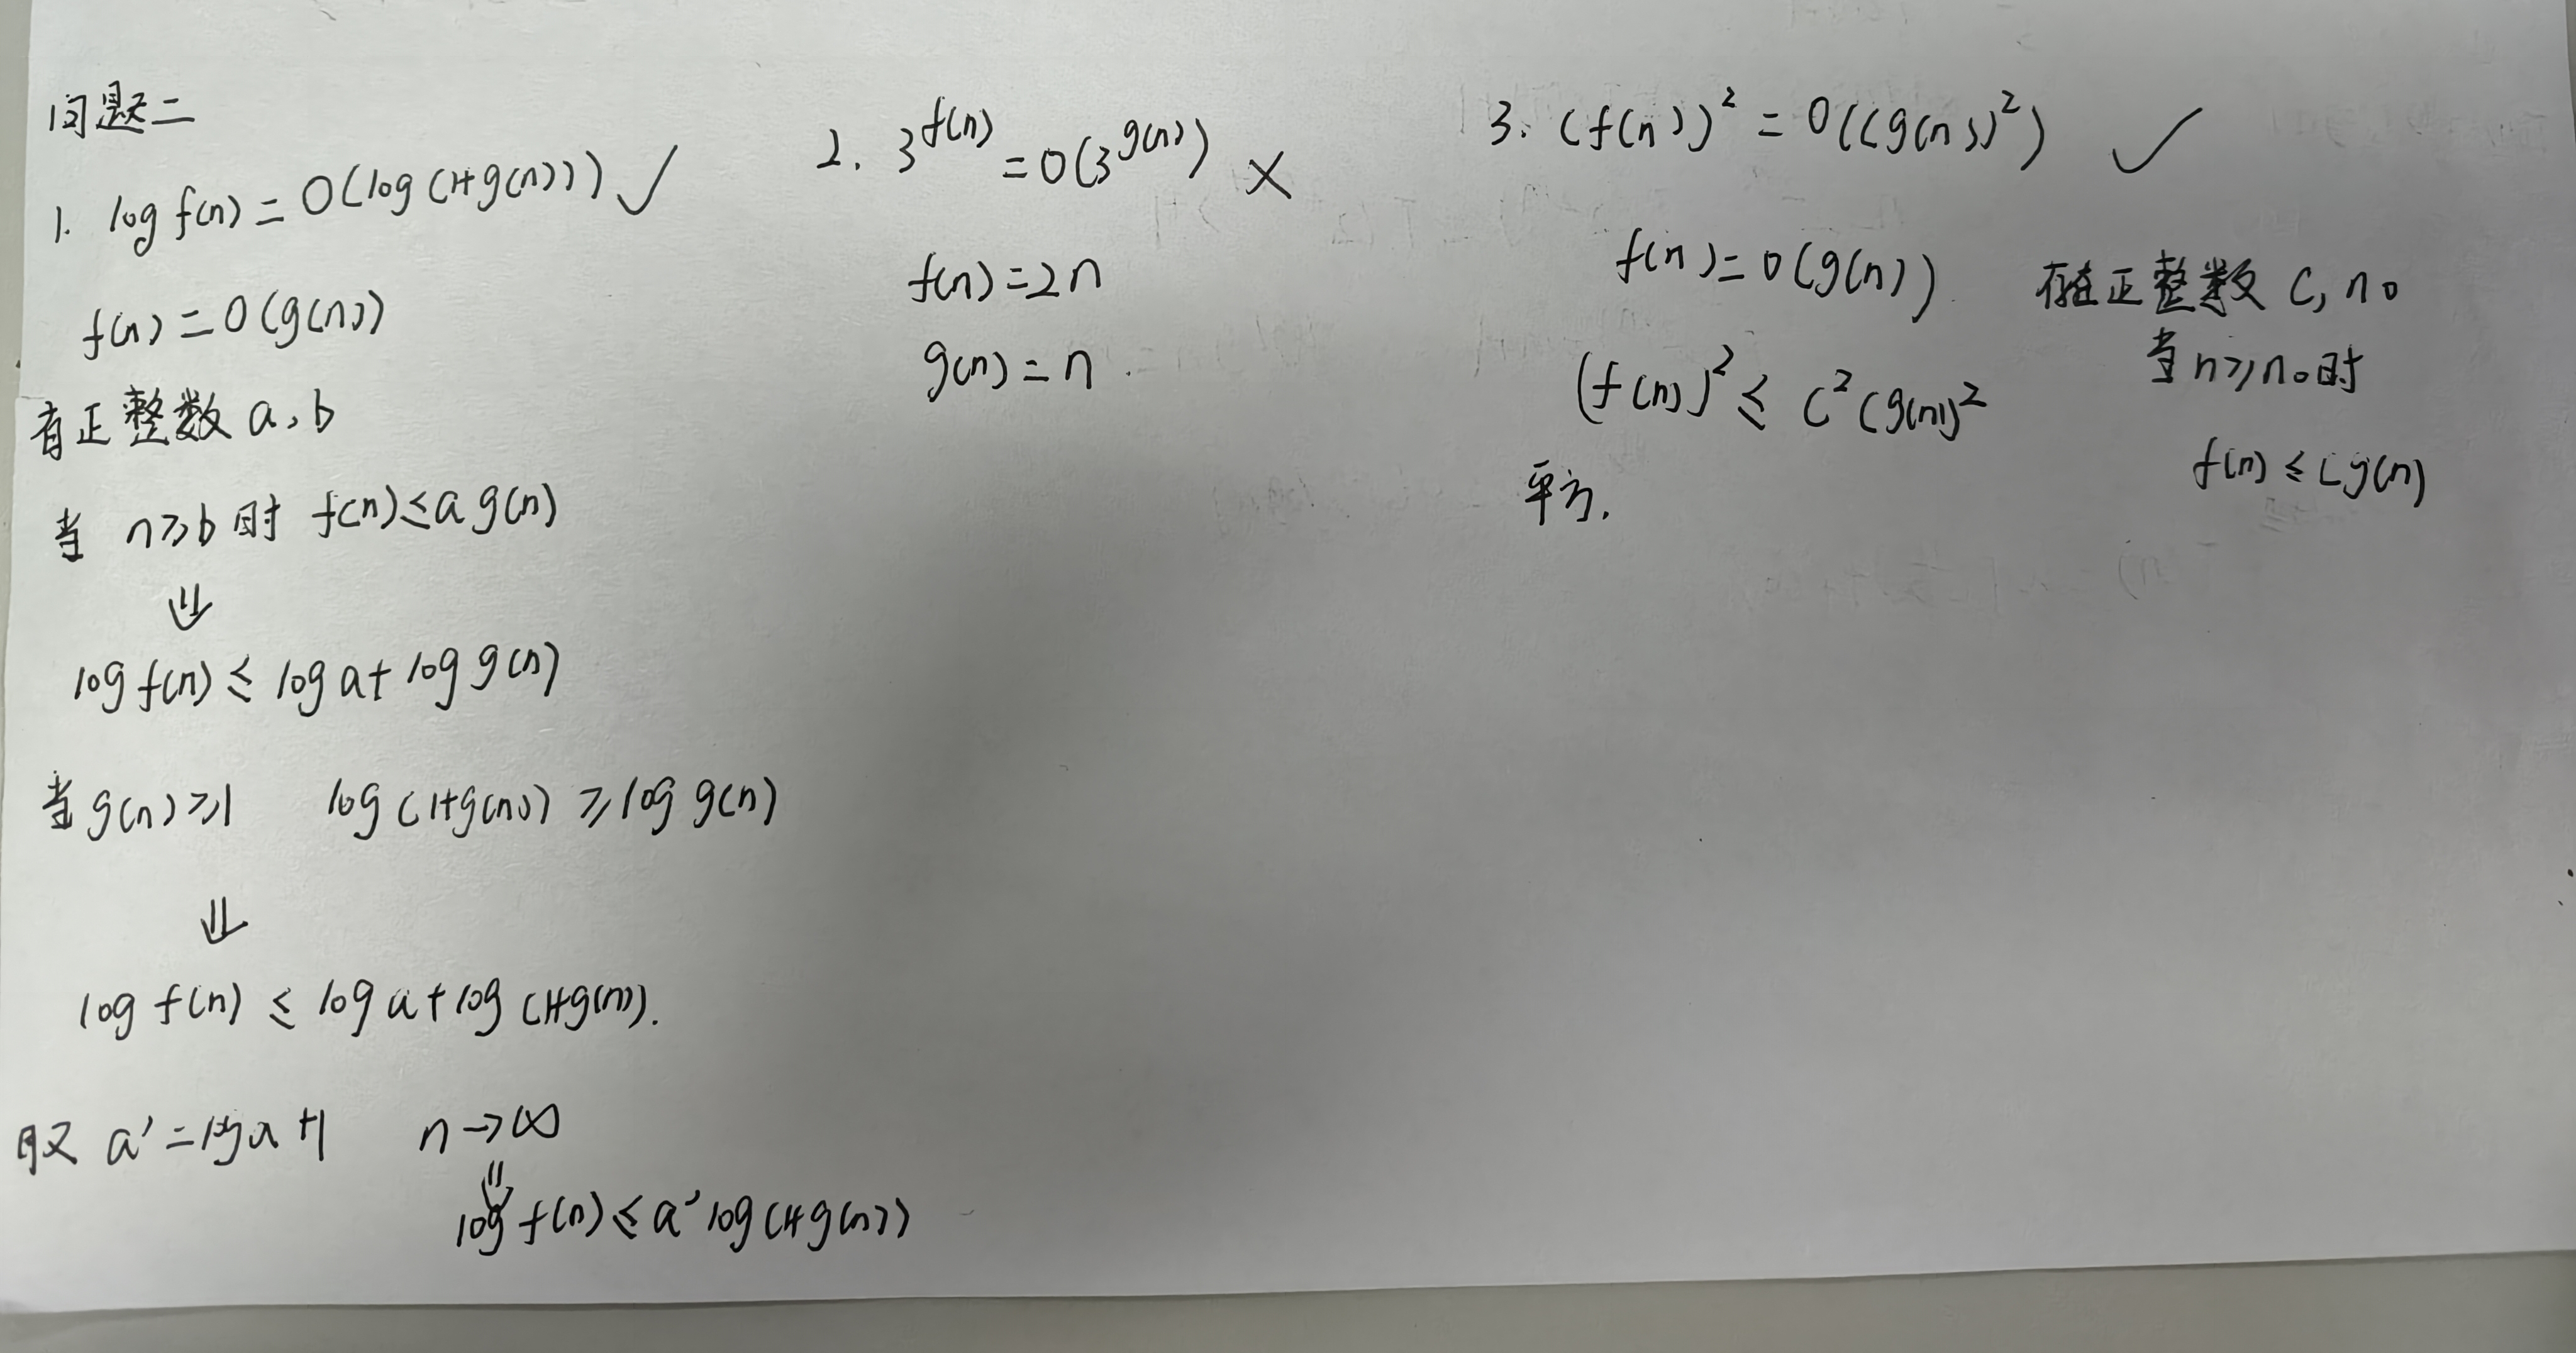 问题二
1. log f(n) = O(log(1+g(n))) ✓
f(n) = O(g(n))
有正整数 a, b
当 n≥b 时 f(n)≤a g(n)
⇓
log f(n) ≤ log a + log g(n)
当 g(n)≥1 log(1+g(n)) ≥ log g(n)
⇓
log f(n) ≤ log a + log(1+g(n)).
取 a' = log a + 1 n→∞
⇓
log f(n) ≤ a' log(1+g(n))
2. 3^f(n) = O(3^g(n)) ×
f(n) = 2n
g(n) = n
3. (f(n))² = O((g(n))²) ✓
f(n) = O(g(n)) 存在正整数 C, n₀
当 n≥n₀ 时
f(n) ≤ Cg(n)
(f(n))² ≤ C²(g(n))²
平方.